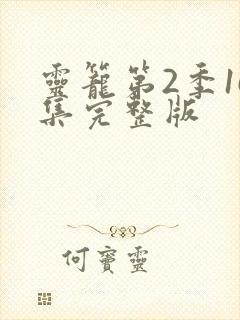 靈籠第2季1
集完整版
何寶靈